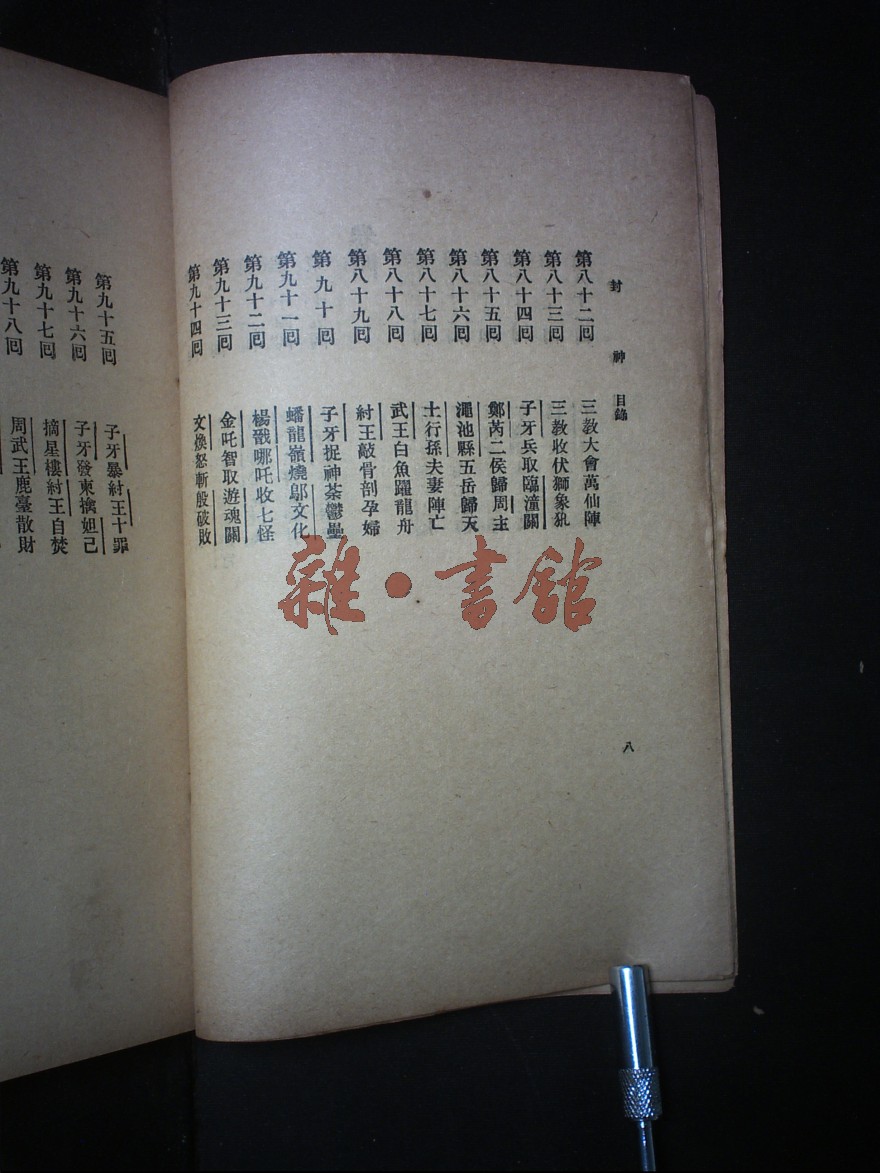 封神 目錄
第八十二回 三教大會萬仙陣
第八十三回 三教收伏獅象犼
第八十四回 子牙兵取臨潼關
第八十五回 鄭芮二侯歸周主
第八十六回 澠池縣五岳歸天
第八十七回 土行孫夫妻陣亡
第八十八回 武王白魚躍龍舟
第八十九回 紂王敲骨剖孕婦
第九十回 子牙捉神荼鬱壘
第九十一回 蟠龍嶺燒鄔文化
第九十二回 楊戩哪吒收七怪
第九十三回 金吒智取遊魂關
第九十四回 文煥怒斬殷破敗
八
第九十五回 子牙暴紂王十罪
第九十六回 子牙發柬擒妲己
第九十七回 摘星樓紂王自焚
第九十八回 周武王鹿臺散財
雜·書館